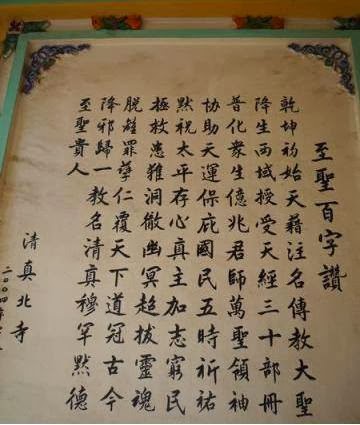 至聖百字讚
乾坤初始天藉注名傳教大聖
降生西域授受天經三十部冊
普化衆生億兆君師萬聖領袖
協助天運保庇國民五時祈祐
默祝太平存心真主加志窮民
極救患難洞徹幽冥超拔靈魂
脫離罪孽仁覆天下道冠古今
降邪歸一教名清真穆罕默德
至聖貴人
清真北寺
二〇〇四